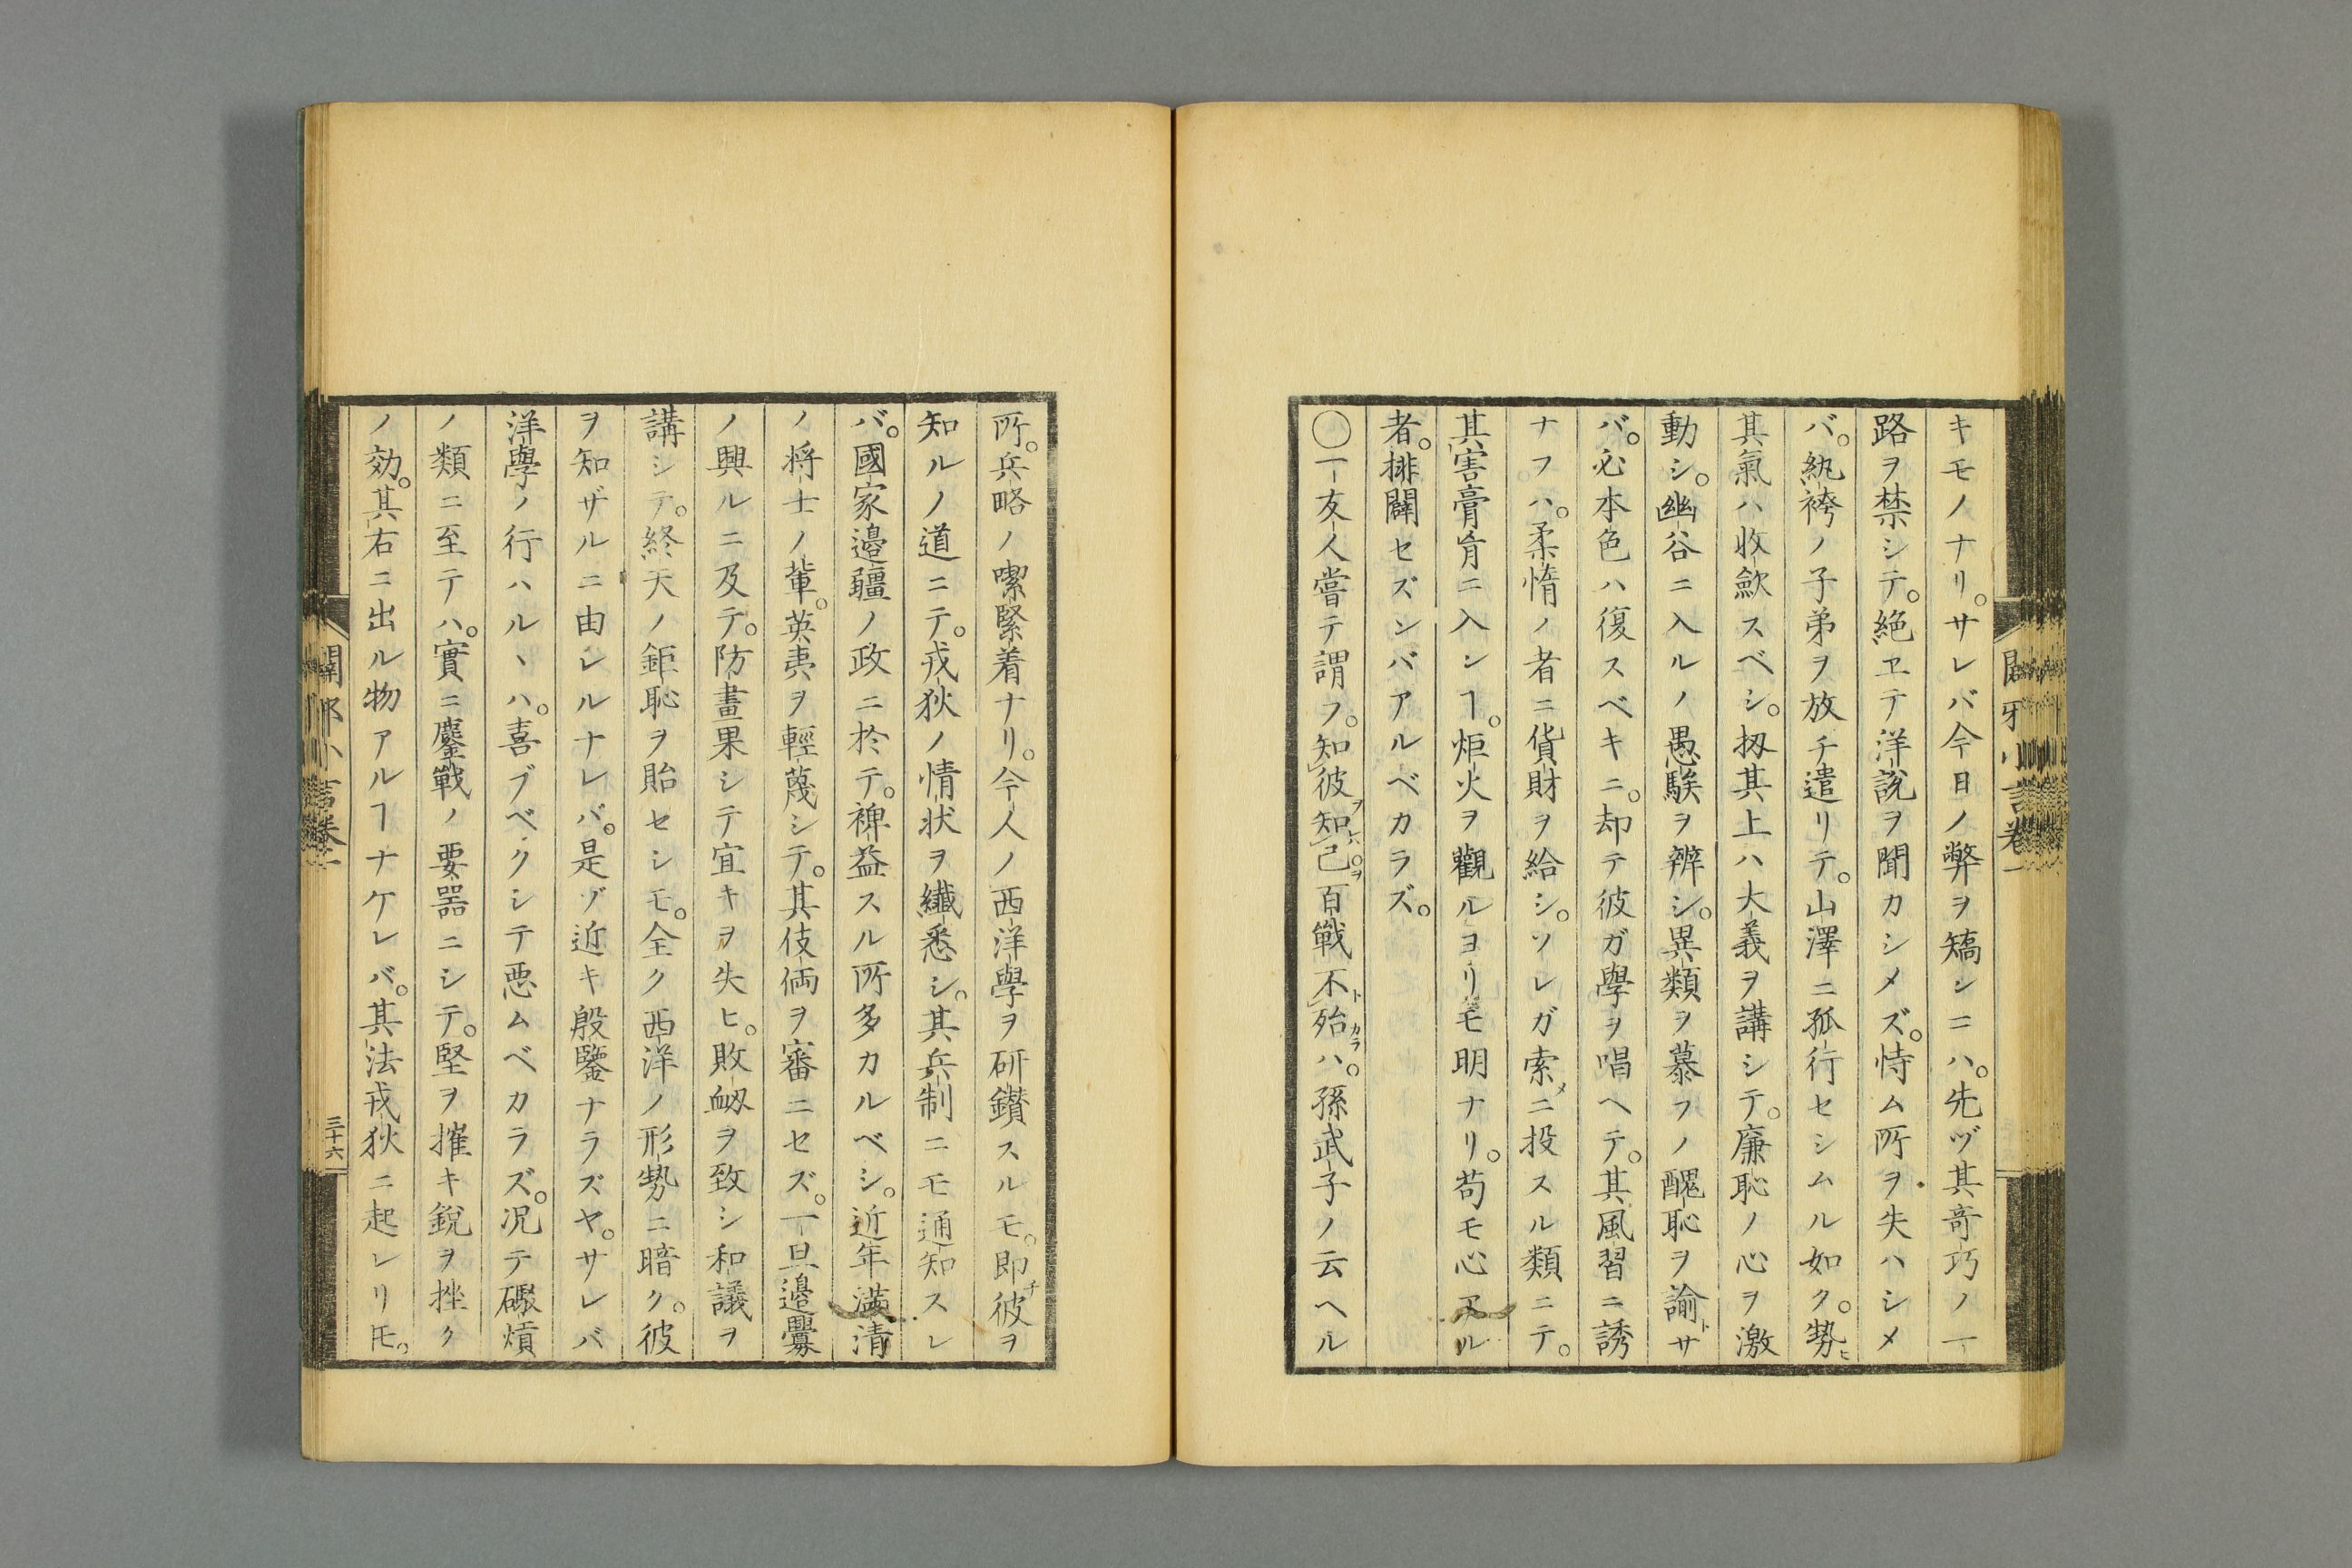 キモノナリ。サレバ今日ノ弊ヲ矯シニハ。先ヅ其奇巧ノ一
路ヲ禁シテ。絶ヱテ洋説ヲ聞カシメズ。恃ム所ヲ失ハシメ
バ。紈袴ノ子弟ヲ放チ遣リテ。山澤ニ孤行セシムル如ク。勢ヒ
其氣ハ收歛スベシ。扨其上ハ大義ヲ講シテ。廉恥ノ心ヲ激
動シ。幽谷ニ入ルノ愚騃ヲ辨シ。異類ヲ慕フノ醜恥ヲ諭トサ
バ。必本色ハ復スベキニ。却テ彼ガ學ヲ唱ヘテ。其風習ニ誘
ナフハ。柔惰ノ者ニ貨財ヲ給シ。ソレガ索メニ投スル類ニテ。
其害膏肓ニ入ンヿ。炬火ヲ觀ルヨリモ明ナリ。苟モ心アル
者。排闢セズンバアルベカラズ。
〇一友人嘗テ謂フ。知彼ヲ知ヒ己ヲ百戰不殆トカラハ。孫武子ノ云ヘル
所。兵略ノ喫緊着ナリ。今人ノ西洋學ヲ研鑚スルモ。即チ彼ヲ
知ルノ道ニテ。戎狄ノ情状ヲ纎悉シ。其兵制ニモ通知スレ
バ。國家邉疆ノ政ニ於テ。裨益スル所多カルベシ。近年滿清
ノ将士ノ輩。英夷ヲ輕蔑シテ。其伎倆ヲ審ニセズ。一旦邉釁
ノ興ルニ及テ。防畫果シテ宜キヲ失ヒ。敗衂ヲ致シ和議ヲ
講シテ。終天ノ鉅恥ヲ貽セシモ。全ク西洋ノ形勢ニ暗ク。彼
ヲ知ザルニ由レルナレバ。是ゾ近キ殷鑒ナラズヤ。サレバ
洋學ノ行ハルヽハ。喜ブベクシテ悪ムベカラズ。况テ礟熕
ノ類ニ至テハ。實ニ鏖戰ノ要噐ニシテ。堅ヲ摧キ銳ヲ挫ク
ノ効。其右ニ出ル物アルヿナケレバ。其法戎狄ニ起レリ𪜈。
三十六